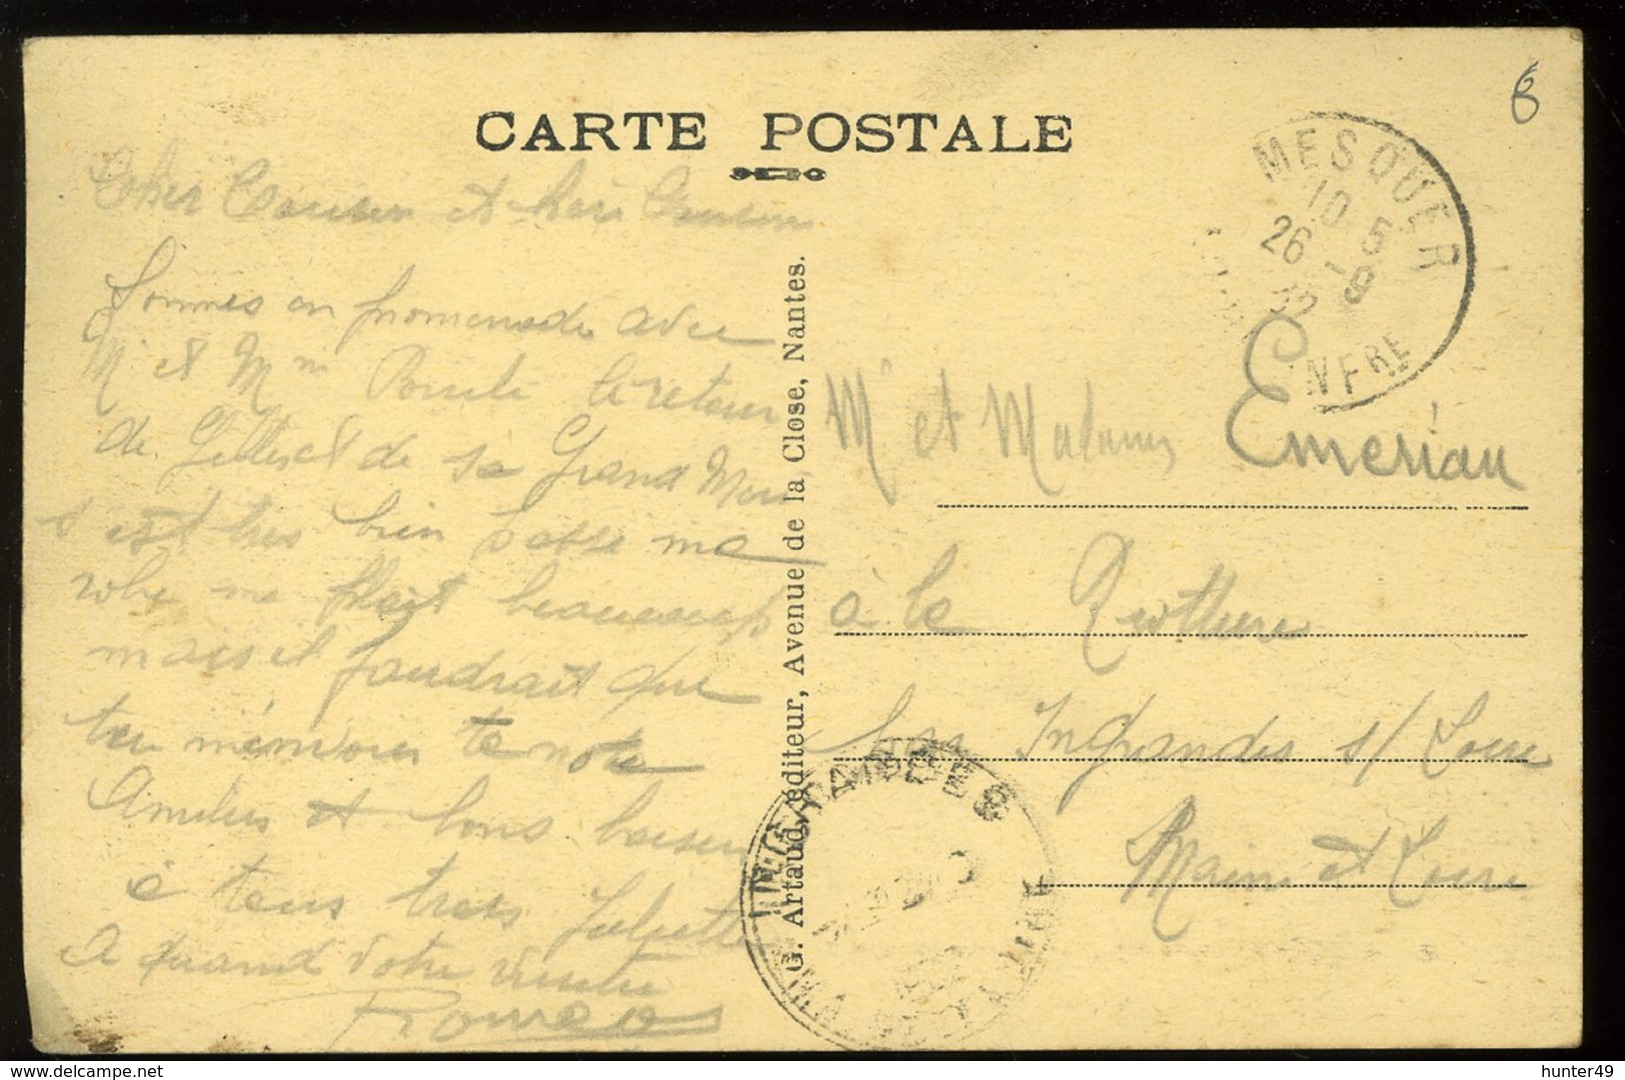 CARTE POSTALE
6
Cher Cousin et chère Cousine
Sommes en promenade avec
Mr et Mme le retour
de et de sa Grand Mère
s est très bien passé ma
robe me plait beaucoup
mais il faudrait que
tu m'envoies ta note
Amitiés et bons baisers
à tous trois Juliette
A quand votre visite
G. Artaud, éditeur, Avenue de la Close, Nantes.
MESQUER
10 5
26 -9
32
INFRE
Mr et Madame Emeriau
à la
Ingrandes s/ Loire
Maine et Loire
INGRANDES
hunter49
delcampe.net